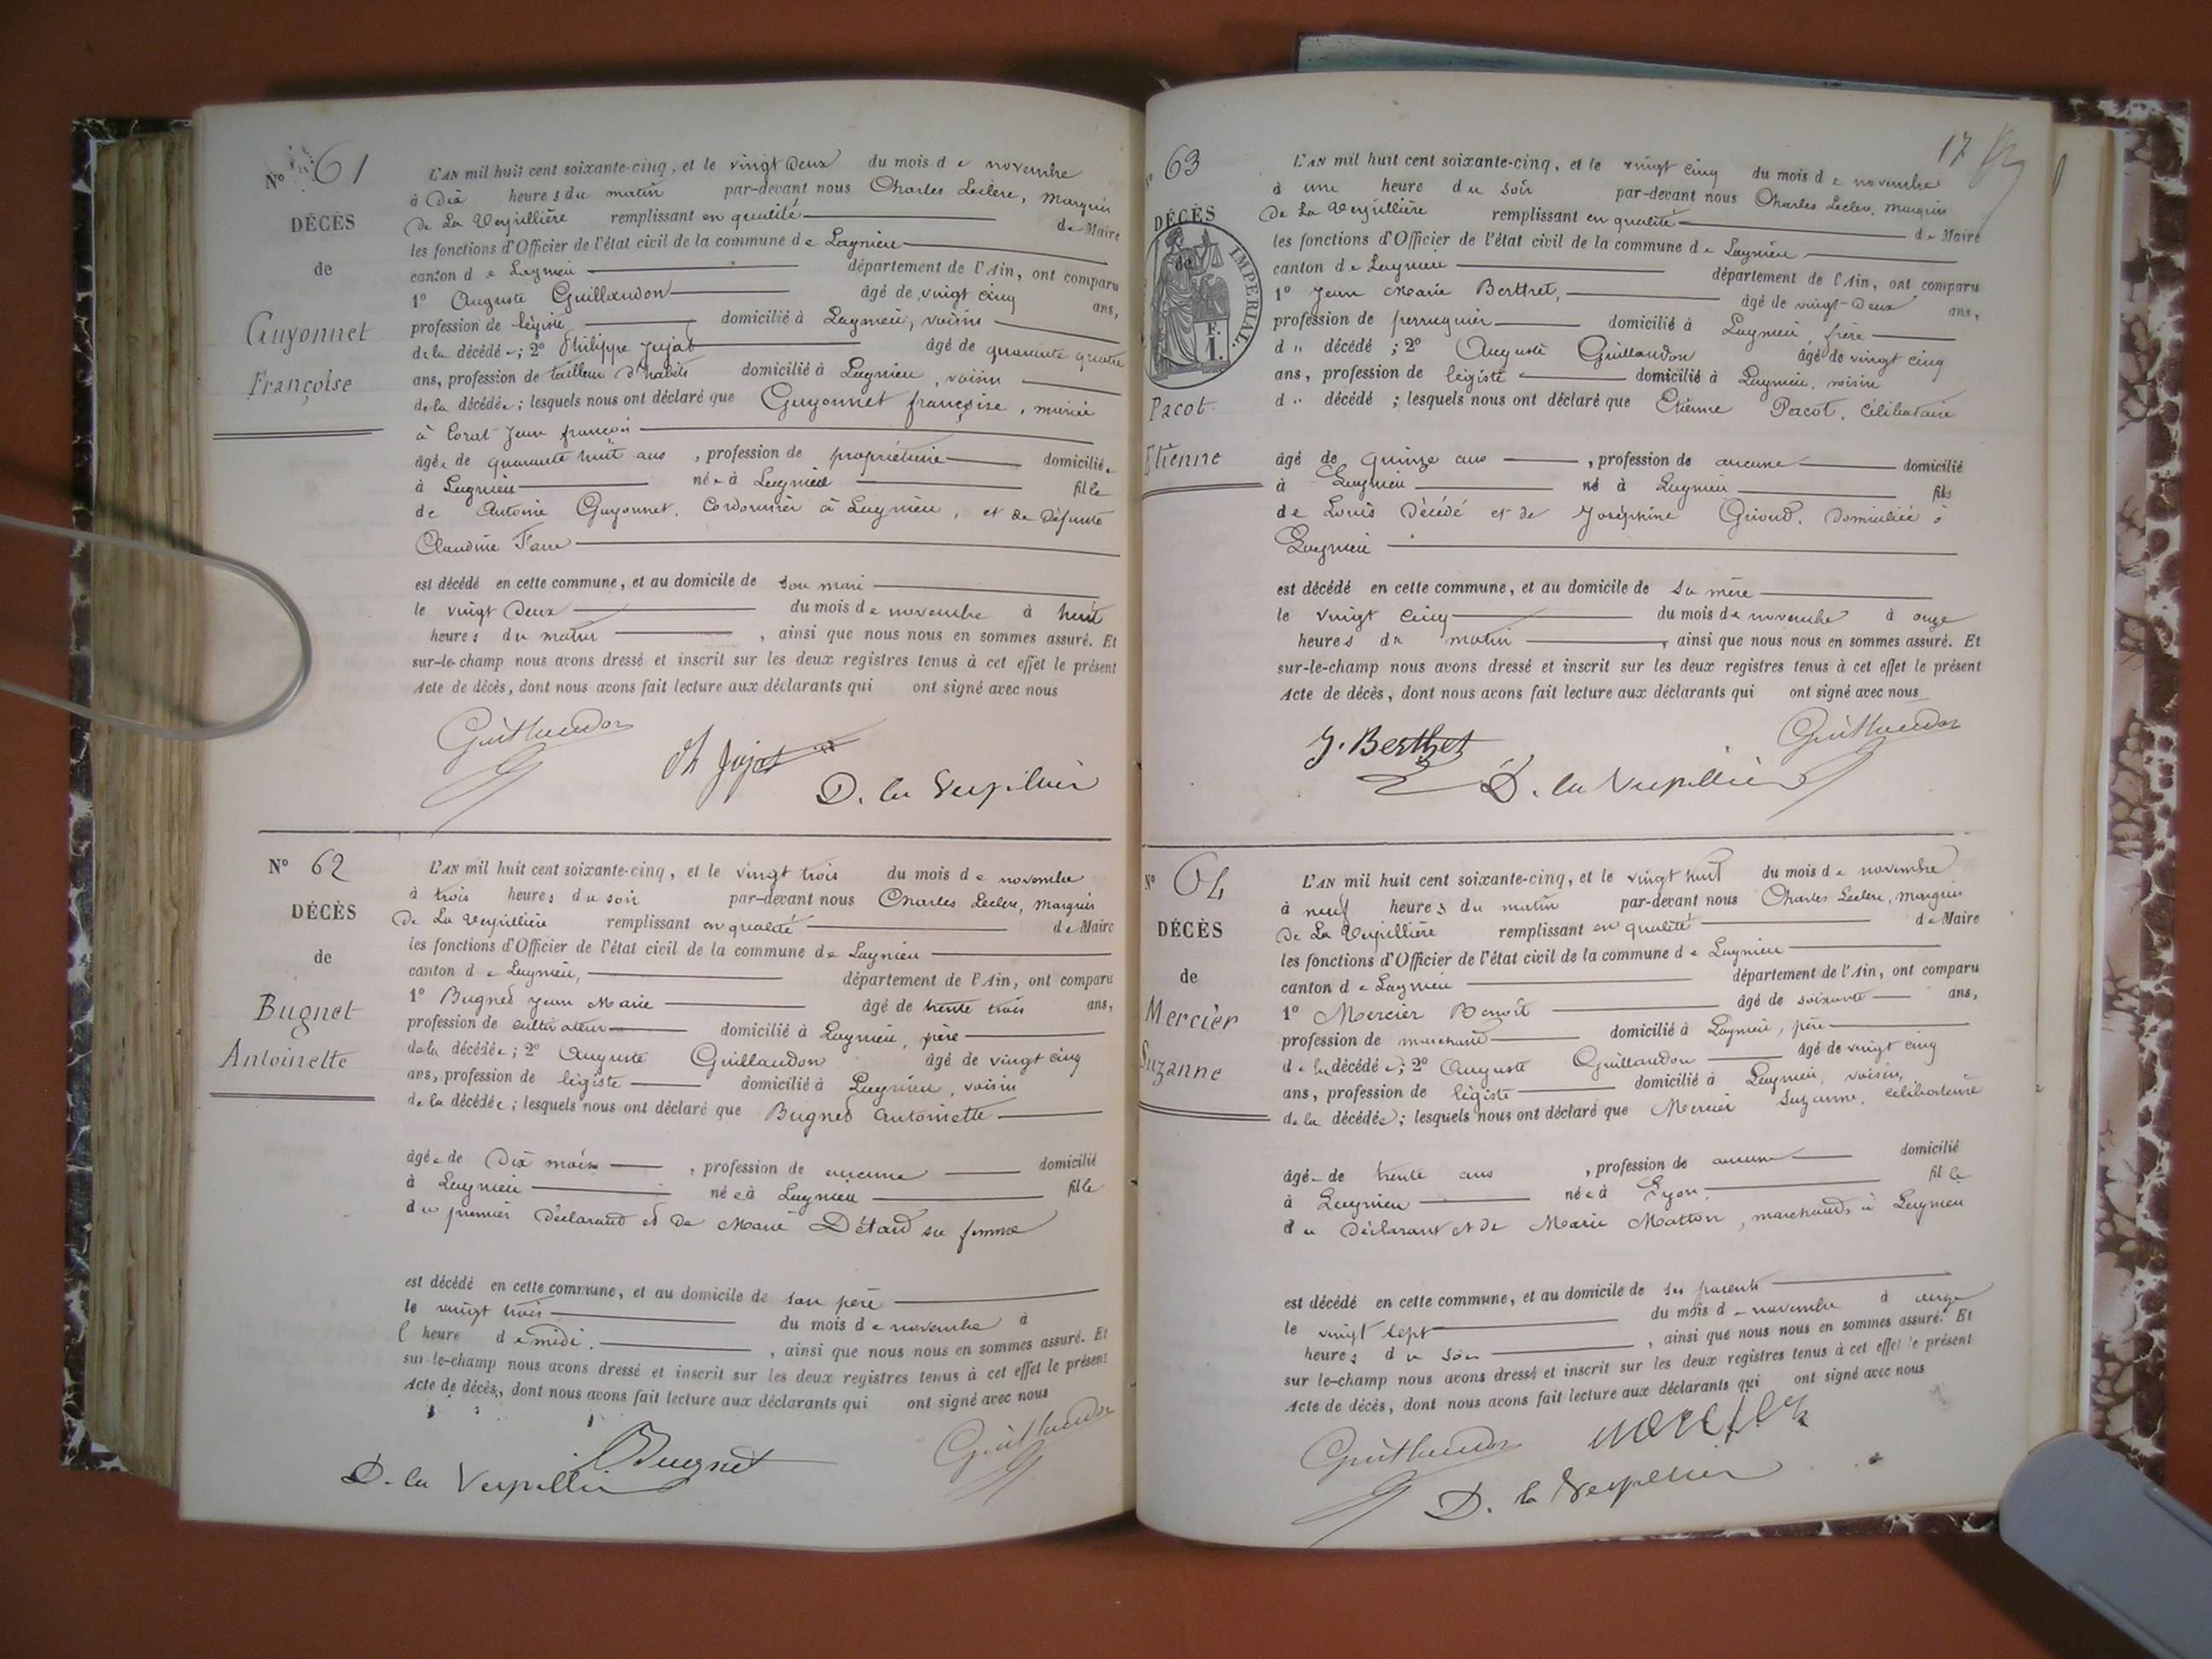 N° 61
DÉCÈS
de
Guyonnet
Françoise
L'AN mil huit cent soixante-cinq, et le vingt deux du mois de novembre
à dix heures du matin par-devant nous Charles Leclerc, Marquis
De La Verpillière remplissant en qualité de Maire
les fonctions d'Officier de l'état civil de la commune de Lagnieu
canton de Lagnieu département de l'Ain, ont comparu
1° Auguste Guillaudon âgé de vingt cinq ans,
profession de légiste domicilié à Lagnieu, voisin
de la décédée; 2° Philippe Jujat âgé de quarante quatre
ans, profession de tailleur d'habits domicilié à Lagnieu, voisin
de la décédée; lesquels nous ont déclaré que Guyonnet françoise, mariée
à Corat Jean françois
âgée de quarante huit ans, profession de propriétaire domiciliée
à Lagnieu née à Lagnieu fille
de Antoine Guyonnet, Cordonnier à Lagnieu, et de défunte
Claudine
est décédé en cette commune, et au domicile de son mari
le vingt deux du mois de novembre à huit
heures du matin, ainsi que nous nous en sommes assuré. Et
sur-le-champ nous avons dressé et inscrit sur les deux registres tenus à cet effet le présent
Acte de décès, dont nous avons fait lecture aux déclarants qui ont signé avec nous
Guillaudon
Ph Jujat
D. la Verpillière
N° 62
DÉCÈS
de
Bugnet
Antoinette
L'AN mil huit cent soixante-cinq, et le vingt trois du mois de novembre
à trois heures du soir par-devant nous Charles Leclerc, Marquis
De La Verpillière remplissant en qualité de Maire
les fonctions d'Officier de l'état civil de la commune de Lagnieu
canton de Lagnieu, département de l'Ain, ont comparu
1° Bugned Jean Marie âgé de trente trois ans,
profession de cultivateur domicilié à Lagnieu, père
de la décédée; 2° Auguste Guillaudon âgé de vingt cinq
ans, profession de légiste domicilié à Lagnieu, voisin
de la décédée; lesquels nous ont déclaré que Bugned Antoinette
âgée de dix mois, profession de aucune domicilié
à Lagnieu née à Lagnieu fille
du premier déclarant et de Marie Détard sa femme
est décédé en cette commune, et au domicile de son père
le vingt trois du mois de novembre à
l heure de midi, ainsi que nous nous en sommes assuré. Et
sur-le-champ nous avons dressé et inscrit sur les deux registres tenus à cet effet le présent
Acte de décès, dont nous avons fait lecture aux déclarants qui ont signé avec nous
D. la Verpillière
Bugnet
Guillaudon
17
N° 63
DÉCÈS
de
IMPERIAL.
F.
1.
Pacot
Etienne
L'AN mil huit cent soixante-cinq, et le vingt cinq du mois de novembre
à une heure du soir par-devant nous Charles Leclerc, Marquis
De La Verpillière remplissant en qualité de Maire
les fonctions d'Officier de l'état civil de la commune de Lagnieu
canton de Lagnieu département de l'Ain, ont comparu
1° Jean Marie Berthet, âgé de vingt-deux ans,
profession de perruquier domicilié à Lagnieu, frère
du décédé; 2° Auguste Guillaudon âgé de vingt cinq
ans, profession de légiste domicilié à Lagnieu, voisin
du décédé; lesquels nous ont déclaré que Etienne Pacot, célibataire
âgé de quinze ans, profession de aucune domicilié
à Lagnieu né à Lagnieu fils
de Louis décédé et de Joséphine domiciliée à
Lagnieu
est décédé en cette commune, et au domicile de sa mère
le vingt cinq du mois de novembre à onze
heures du matin, ainsi que nous nous en sommes assuré. Et
sur-le-champ nous avons dressé et inscrit sur les deux registres tenus à cet effet le présent
Acte de décès, dont nous avons fait lecture aux déclarants qui ont signé avec nous
J. Berthet
Guillaudon
D. la Verpillière
N° 64
DÉCÈS
de
Mercier
Suzanne
L'AN mil huit cent soixante-cinq, et le vingt huit du mois de novembre
à neuf heures du matin par-devant nous Charles Leclerc, Marquis
De La Verpillière remplissant en qualité de Maire
les fonctions d'Officier de l'état civil de la commune de Lagnieu
canton de Lagnieu département de l'Ain, ont comparu
1° Mercier Benoît âgé de soixante ans,
profession de marchand domicilié à Lagnieu, père
de la décédée; 2° Auguste Guillaudon âgé de vingt cinq
ans, profession de légiste domicilié à Lagnieu, voisin,
de la décédée; lesquels nous ont déclaré que Mercier Suzanne, célibataire
âgée de trente ans, profession de aucune domicilié
à Lagnieu née à Lyon fille
du déclarant et de Marie Matton, marchands à Lagnieu
est décédé en cette commune, et au domicile de ses parents
le vingt sept du mois de novembre à onze
heures du soir, ainsi que nous nous en sommes assuré. Et
sur le-champ nous avons dressé et inscrit sur les deux registres tenus à cet effet le présent
Acte de décès, dont nous avons fait lecture aux déclarants qui ont signé avec nous
Guillaudon
mercier
D. la Verpillière